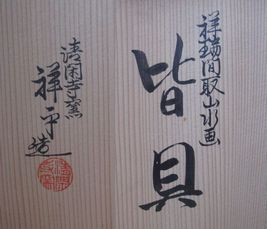 祥瑞間取山水画
皆具
清閑寺窯
祥平造